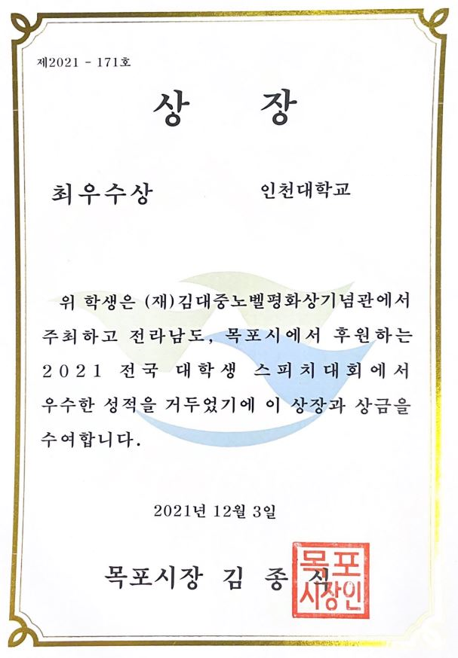 제2021 - 171호
상 장
최우수상 인천대학교
위 학생은 (재)김대중노벨평화상기념관에서
주최하고 전라남도, 목포시에서 후원하는
2021 전국 대학생 스피치대회에서
우수한 성적을 거두었기에 이 상장과 상금을
수여합니다.
2021년 12월 3일
목포시장 김 종 식
목포
시장인